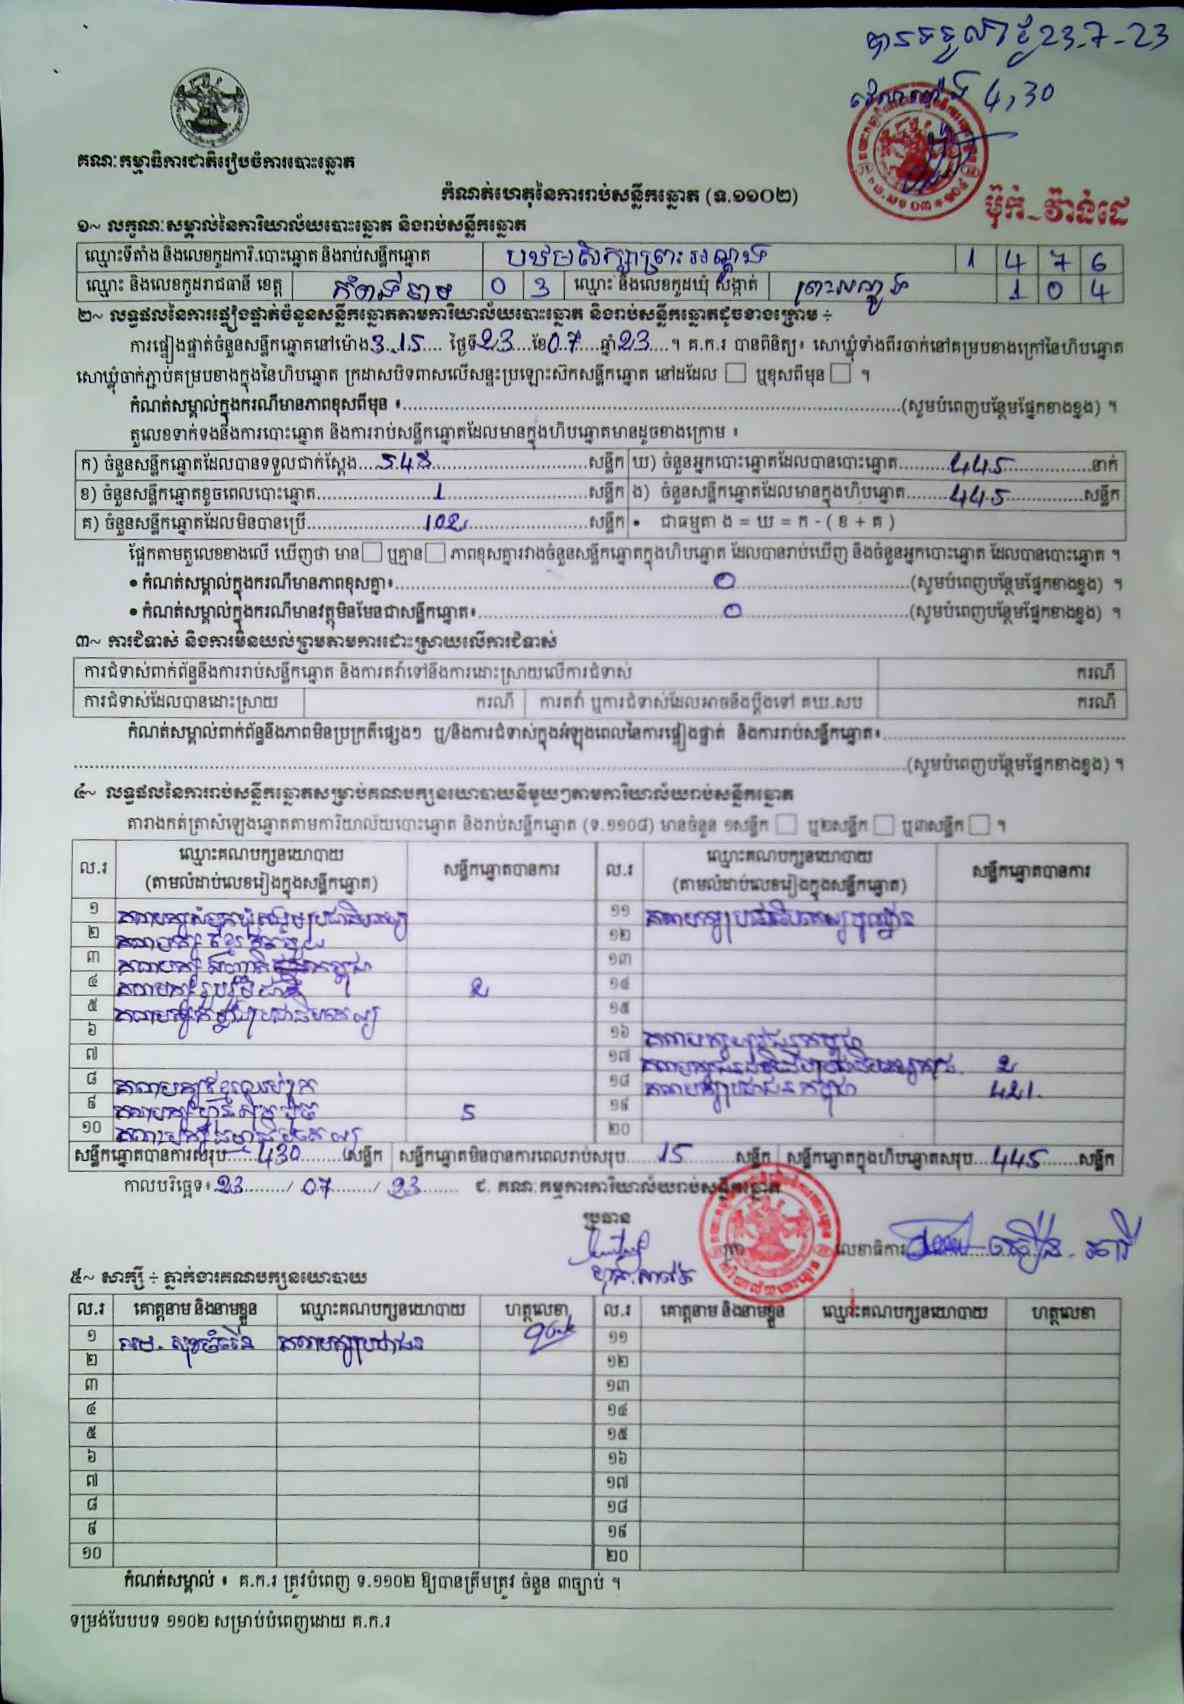 បានទទួលថ្ងៃ 23-7-23
វេលាម៉ោង 4,30
គណៈកម្មាធិការជាតិរៀបចំការបោះឆ្នោត
កំណត់ហេតុនៃការរាប់សន្លឹកឆ្នោត (ទ.១១០២)
ប៊ុក-វ៉ាន់ដេ
១~ លក្ខណៈសម្គាល់នៃការិយាល័យបោះឆ្នោត និងរាប់សន្លឹកឆ្នោត
ឈ្មោះទីតាំង និងលេខកូដការិ.បោះឆ្នោត និងរាប់សន្លឹកឆ្នោត បឋមសិក្សាព្រះអណ្តូង 1 4 7 6
ឈ្មោះ និងលេខកូដរាជធានី ខេត្ត កំពង់ចាម 0 3 ឈ្មោះ និងលេខកូដឃុំ សង្កាត់ 1 0 4
២~ លទ្ធផលនៃការផ្ទៀងផ្ទាត់ចំនួនសន្លឹកឆ្នោតតាមការិយាល័យបោះឆ្នោត និងរាប់សន្លឹកឆ្នោតដូចខាងក្រោម ÷
ការផ្ទៀងផ្ទាត់ចំនួនសន្លឹកឆ្នោតនៅម៉ោង 3.15 ថ្ងៃទី 23 ខែ 07 ឆ្នាំ 23 ។ គ.ក.រ បានពិនិត្យ៖ សោឃ្លុំទាំងពីរចាក់នៅគម្របខាងក្រៅនៃហិបឆ្នោត
សោឃ្លុំចាក់ភ្ជាប់គម្របខាងក្នុងនៃហិបឆ្នោត ក្រដាសបិទពាសលើសន្ទះប្រឡោះស៊កសន្លឹកឆ្នោត នៅដដែល ☐ ឬខុសពីមុន ☐ ។
កំណត់សម្គាល់ក្នុងករណីមានភាពខុសពីមុន ៖ (សូមបំពេញបន្ថែមផ្នែកខាងខ្នង) ។
តួលេខទាក់ទងនឹងការបោះឆ្នោត និងការរាប់សន្លឹកឆ្នោតដែលមានក្នុងហិបឆ្នោតមានដូចខាងក្រោម ៖
ក) ចំនួនសន្លឹកឆ្នោតដែលបានទទួលជាក់ស្តែង 548 សន្លឹក ឃ) ចំនួនអ្នកបោះឆ្នោតដែលបានបោះឆ្នោត 445 នាក់
ខ) ចំនួនសន្លឹកឆ្នោតខូចពេលបោះឆ្នោត 1 សន្លឹក ង) ចំនួនសន្លឹកឆ្នោតដែលមានក្នុងហិបឆ្នោត 445 សន្លឹក
គ) ចំនួនសន្លឹកឆ្នោតដែលមិនបានប្រើ 102 សន្លឹក • ជាធម្មតា ង = ឃ = ក - ( ខ + គ )
ផ្អែកតាមតួលេខខាងលើ ឃើញថា មាន ☐ ឬគ្មាន ☐ ភាពខុសគ្នារវាងចំនួនសន្លឹកឆ្នោតក្នុងហិបឆ្នោត ដែលបានរាប់ឃើញ និងចំនួនអ្នកបោះឆ្នោត ដែលបានបោះឆ្នោត ។
• កំណត់សម្គាល់ក្នុងករណីមានភាពខុសគ្នា៖ 0 (សូមបំពេញបន្ថែមផ្នែកខាងខ្នង) ។
• កំណត់សម្គាល់ក្នុងករណីមានវត្ថុមិនមែនជាសន្លឹកឆ្នោត៖ 0 (សូមបំពេញបន្ថែមផ្នែកខាងខ្នង) ។
៣~ ការជំទាស់ និងការមិនយល់ព្រមតាមការដោះស្រាយលើការជំទាស់
ការជំទាស់ពាក់ព័ន្ធនឹងការរាប់សន្លឹកឆ្នោត និងការតវ៉ាទៅនឹងការដោះស្រាយលើការជំទាស់ ករណី
ការជំទាស់ដែលបានដោះស្រាយ ករណី ការតវ៉ា ឬការជំទាស់ដែលអាចនឹងប្តឹងទៅ គឃ.សប ករណី
កំណត់សម្គាល់ពាក់ព័ន្ធនឹងភាពមិនប្រក្រតីផ្សេងៗ ឬ/និងការជំទាស់ក្នុងអំឡុងពេលនៃការផ្ទៀងផ្ទាត់ និងការរាប់សន្លឹកឆ្នោត៖
(សូមបំពេញបន្ថែមផ្នែកខាងខ្នង) ។
៤~ លទ្ធផលនៃការរាប់សន្លឹកឆ្នោតសម្រាប់គណបក្សនយោបាយនីមួយៗតាមការិយាល័យរាប់សន្លឹកឆ្នោត
តារាងកត់ត្រាសំឡេងឆ្នោតតាមការិយាល័យបោះឆ្នោត និងរាប់សន្លឹកឆ្នោត (ទ.១១០៨) មានចំនួន ១សន្លឹក ☐ ឬ២សន្លឹក ☐ ឬ៣សន្លឹក ☐ ។
ល.រ ឈ្មោះគណបក្សនយោបាយ សន្លឹកឆ្នោតបានការ ល.រ ឈ្មោះគណបក្សនយោបាយ សន្លឹកឆ្នោតបានការ
(តាមលំដាប់លេខរៀងក្នុងសន្លឹកឆ្នោត) (តាមលំដាប់លេខរៀងក្នុងសន្លឹកឆ្នោត)
១ គណបក្សសំបុកឃ្មុំសង្គមប្រជាធិបតេយ្យ ១១
២ គណបក្សខ្មែរ ១២
៣ គណបក្ស ១៣
៤ គណបក្ស 2 ១៤
៥ គណបក្ស ១៥
៦ ១៦ គណបក្សយុវជនកម្ពុជា
៧ ១៧ គណបក្ស 2
៨ គណបក្សខ្មែរ ១៨ គណបក្សប្រជាជនកម្ពុជា 421
៩ គណបក្សហ៊្វុនស៊ិនប៉ិច 5 ១៩
១០ គណបក្សធម្មាធិបតេយ្យ ២០
សន្លឹកឆ្នោតបានការសរុប 430 សន្លឹក សន្លឹកឆ្នោតមិនបានការពេលរាប់សរុប 15 សន្លឹក សន្លឹកឆ្នោតក្នុងហិបឆ្នោតសរុប 445 សន្លឹក
កាលបរិច្ឆេទ៖ 23 / 07 / 23 ជ. គណៈកម្មការការិយាល័យរាប់សន្លឹកឆ្នោត
ប្រធាន
លេខាធិការ
៥~ សាក្សី ÷ ភ្នាក់ងារគណបក្សនយោបាយ
ល.រ គោត្តនាម និងនាមខ្លួន ឈ្មោះគណបក្សនយោបាយ ហត្ថលេខា ល.រ គោត្តនាម និងនាមខ្លួន ឈ្មោះគណបក្សនយោបាយ ហត្ថលេខា
១ គណបក្សប្រជាជន ១១
២ ១២
៣ ១៣
៤ ១៤
៥ ១៥
៦ ១៦
៧ ១៧
៨ ១៨
៩ ១៩
១០ ២០
កំណត់សម្គាល់ ៖ គ.ក.រ ត្រូវបំពេញ ទ.១១០២ ឱ្យបានត្រឹមត្រូវ ចំនួន ៣ច្បាប់ ។
ទម្រង់បែបបទ ១១០២ សម្រាប់បំពេញដោយ គ.ក.រ